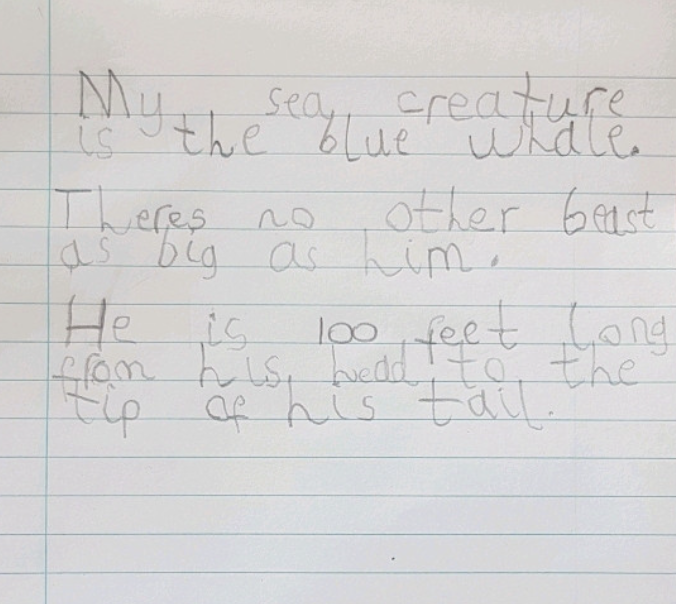 My sea creature
is the blue whale.
Theres no other beast
as big as him.
He is 100 feet long
from his head to the
tip of his tail.